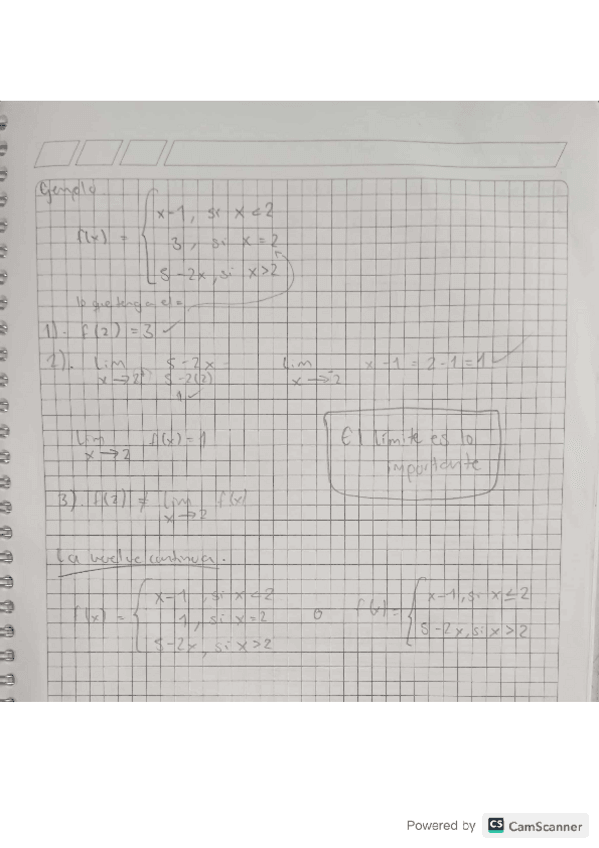 Ejemplo
f(x) = { x-1, si x<2
3, si x=2
5-2x, si x>2
lo que tenga el =
1). f(2) = 3 ✓
2). Lim x→2⁺ 5-2x Lim x→2⁻ x-1 = 2-1 = 1 ✓
5-2(2)
1 ✓
Lim x→2 f(x) = 1
El límite es lo
importante
3). f(2) ≠ Lim x→2 f(x)
La vuelve continua.
f(x) = { x-1, si x<2 o f(x) = { x-1, si x≤2
1, si x=2
5-2x, si x>2 5-2x, si x>2
Powered by CS CamScanner